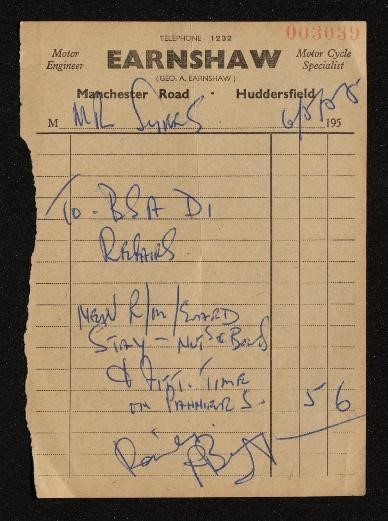 TELEPHONE 1232
003039
Motor Engineer
EARNSHAW
Motor Cycle Specialist
(GEO. A. EARNSHAW)
Manchester Road · Huddersfield
M MR SYKES 6/5/58 195
TO - BSA D1
REPAIRS
NEW R/M/GUARD
STAY - NUTS & BOLTS
& FITT. TIME
ON PANNIERS. 5 6